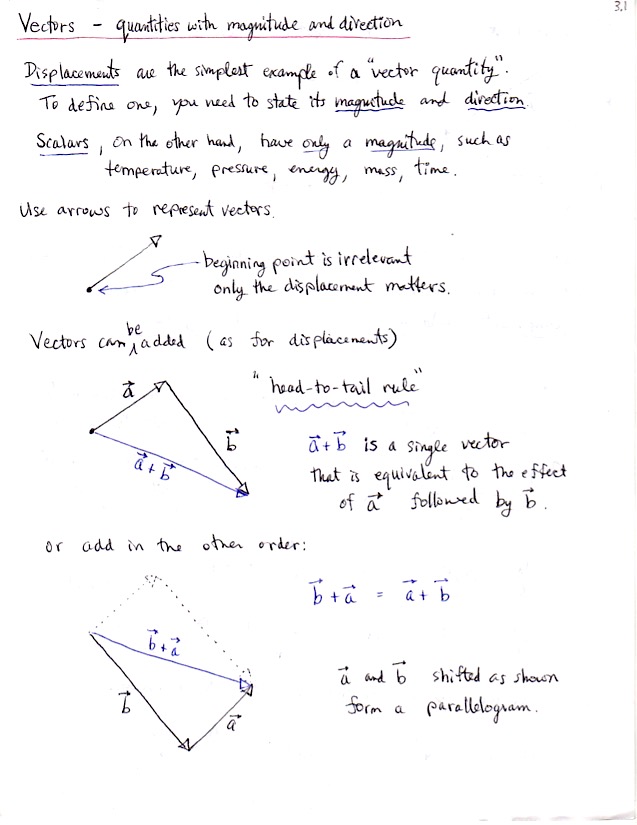 3.1
Vectors - quantities with magnitude and direction
Displacements are the simplest example of a "vector quantity".
To define one, you need to state its magnitude and direction
Scalars, on the other hand, have only a magnitude, such as
temperature, pressure, energy, mass, time.
Use arrows to represent vectors.
beginning point is irrelevant
only the displacement matters.
Vectors can be added (as for displacements)
"head-to-tail rule"
a⃗
b⃗
a⃗ + b⃗
a⃗ + b⃗ is a single vector
that is equivalent to the effect
of a⃗ followed by b⃗.
or add in the other order:
b⃗ + a⃗ = a⃗ + b⃗
b⃗ + a⃗
b⃗
a⃗
a⃗ and b⃗ shifted as shown
form a parallelogram.